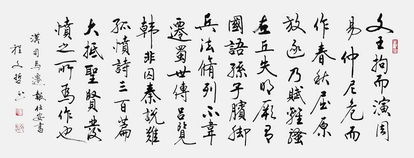 文王拘而演周
易仲尼厄而
作春秋屈原
放逐乃賦離騷
左丘失明厥有
國語孫子臏腳
兵法脩列不韋
遷蜀世傳呂覽
韓非囚秦說難
孤憤詩三百篇
大抵聖賢發
憤之所為作也
漢司馬遷報任安書